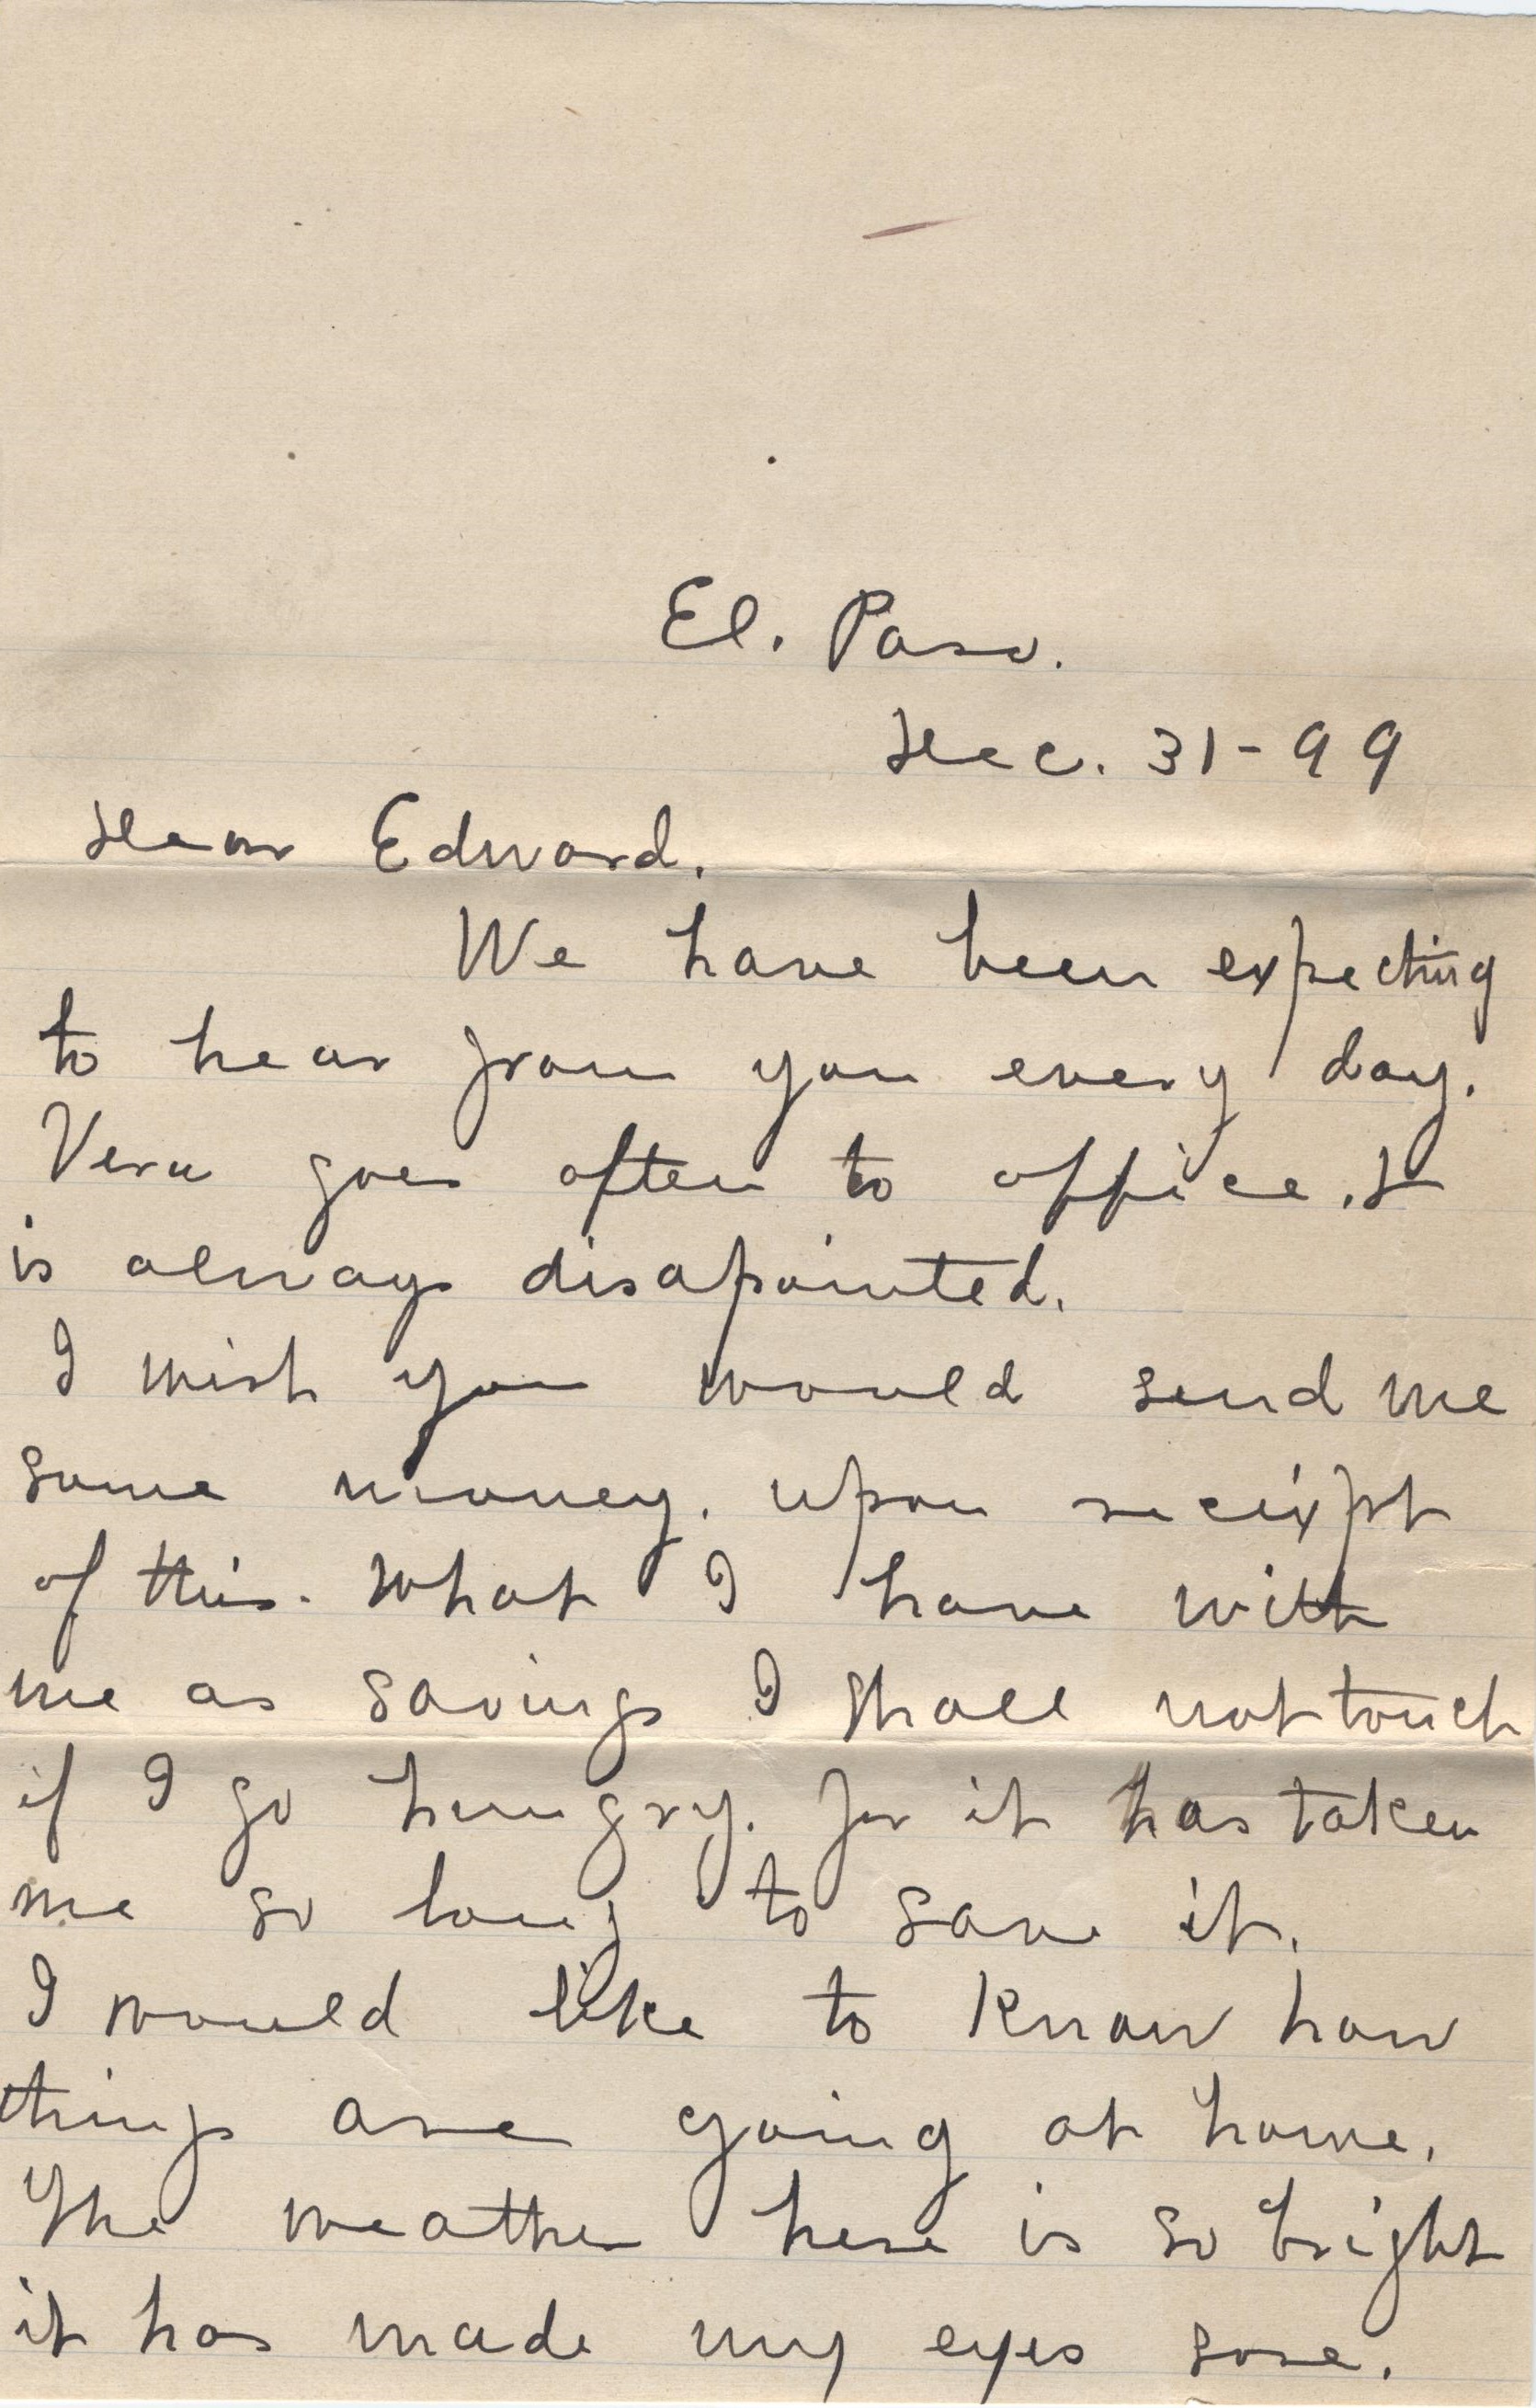 El. Paso.
Dec. 31-99
Dear Edward.
We have been expecting
to hear from you every day.
Vera goes often to office. &
is always disapointed.
I wish you would send me
some money. upon reciept
of this. What I have with
me as savings I shall not touch
if I go hungry. for it has taken
me so long to save it.
I would like to know how
things are going at home.
The weather here is so bright
it has made my eyes sore.